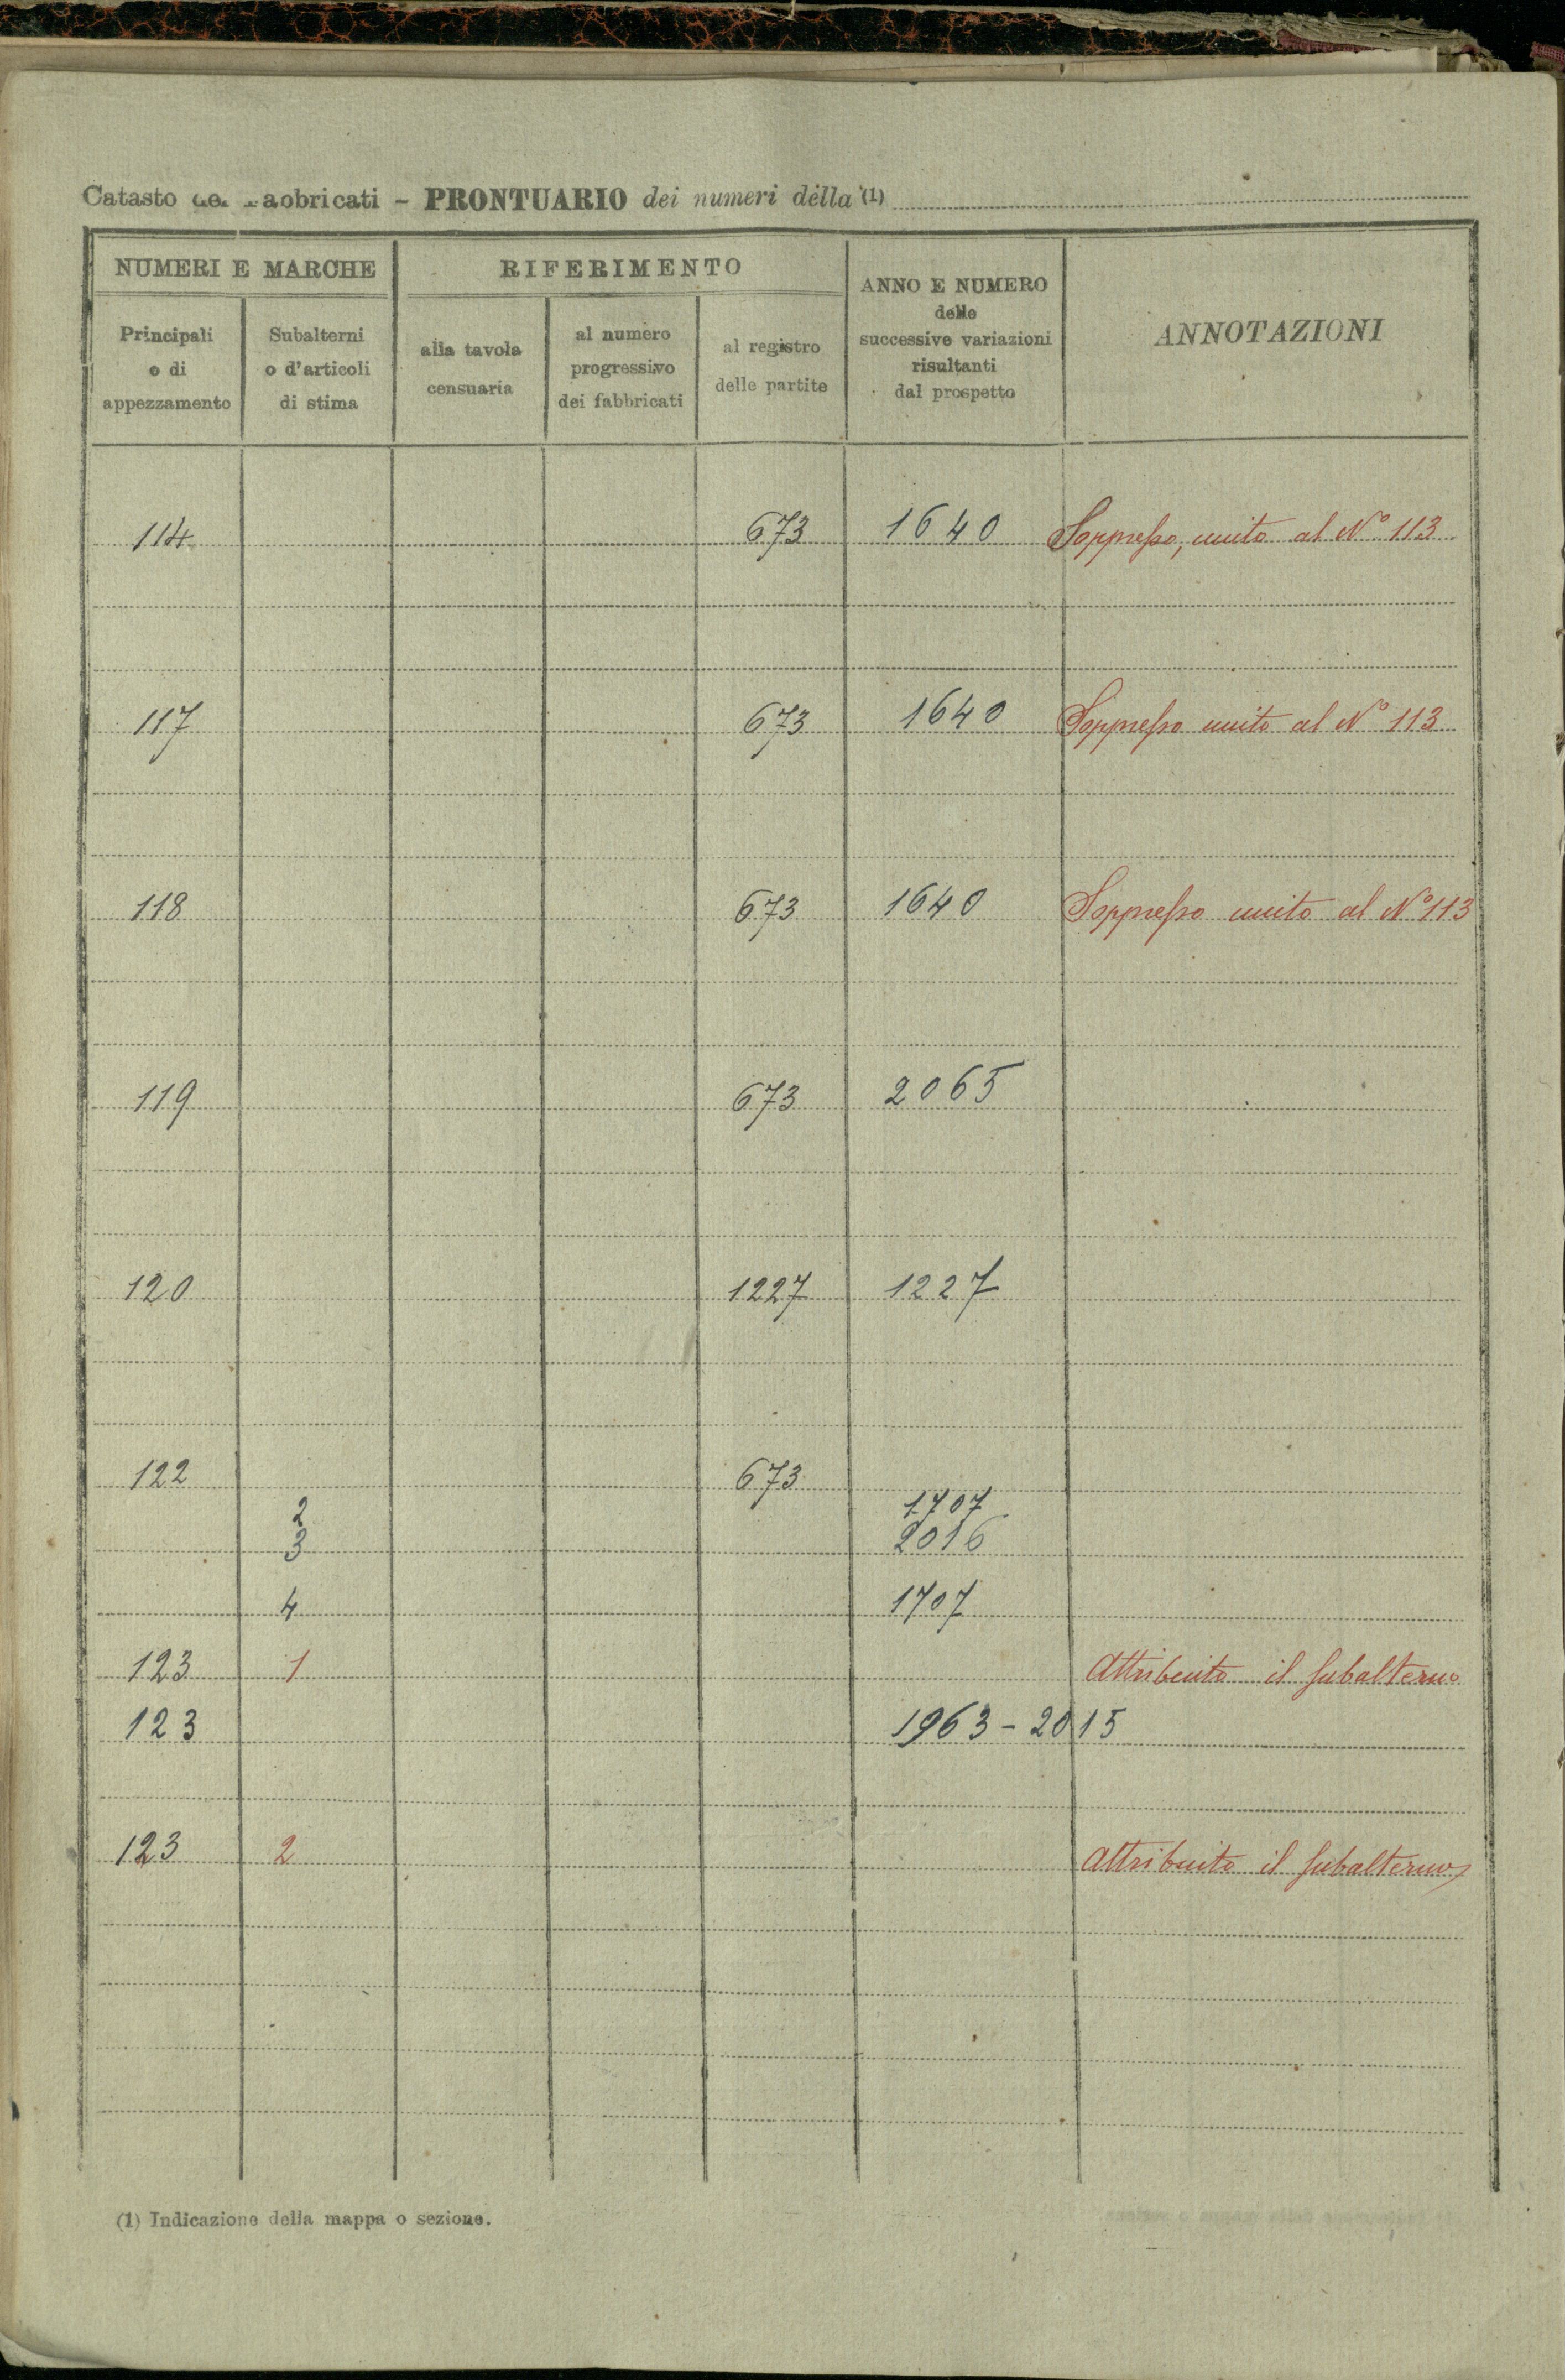 Catasto dei Fabbricati - PRONTUARIO dei numeri della (1)
NUMERI E MARCHE
RIFERIMENTO
ANNO E NUMERO
delle
successive variazioni
risultanti
dal prospetto
ANNOTAZIONI
Principali
o di
appezzamento
Subalterni
o d'articoli
di stima
alla tavola
censuaria
al numero
progressivo
dei fabbricati
al registro
delle partite
114 673 1640 Soppresso, unito al Nº 113
117 673 1640 Soppresso unito al Nº 113
118 673 1640 Soppresso unito al Nº 113
119 673 2065
120 1227 1227
122 673
2 1707
3 2016
4 1707
123 1 Attribuito il subalterno
123 1963 - 2015
123 2 Attribuito il subalterno
(1) Indicazione della mappa o sezione.